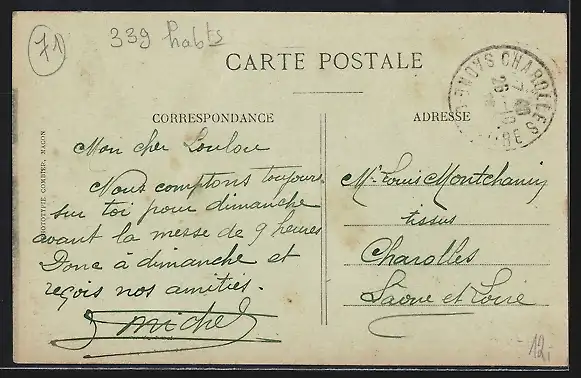 71
339 habts
CARTE POSTALE
CORRESPONDANCE
ADRESSE
Mon cher Loulou
Nous comptons toujours
sur toi pour dimanche
avant la messe de 9 heures
Donc à dimanche et
reçois nos amitiés.
Michel
Mr Louis Montchanin
tissus
Charolles
Saône et Loire
PHOTOTYPIE COMBIER, MACON
CHAROLLES
12.-